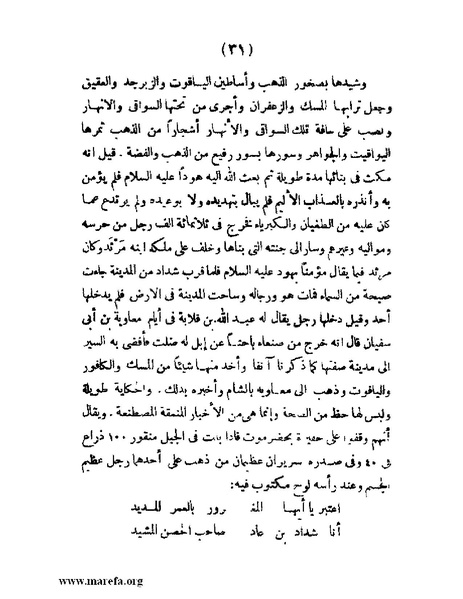 (٣١)
وشيدها بصخور الذهب وأساطين الياقوت والزبرجد والعقيق
وجعل ترابها المسك والزعفران وأجرى من تحتها السواقى والانهار
ونصب على حافة تلك السواقى والأنهار أشجاراً من الذهب ثمرها
اليواقيت والجواهر وسورها بسور رفيع من الذهب والفضة . قيل انه
مكث فى بنائها مدة طويلة ثم بعث الله اليه هوداً عليه السلام فلم يؤمن
به وأنذره بالعذاب الأليم فلم يبال بتهديده ولا بوعيده ولم يرتدع عما
كان عليه من الطغيان والكبرياء فخرج فى ثلاثمائة الف رجل من حرسه
ومواليه وغيرهم وسار الى جنته التى بناها وخلف على ملكه ابنه مرثد وكان
مرثد فيما يقال مؤمناً بهود عليه السلام فلما قرب شداد من المدينة جاءت
صيحة من السماء فمات هو ورجاله وساخت المدينة فى الارض فلم يدخلها
أحد وقيل دخلها رجل يقال له عبد الله بن قلابة فى أيام معاوية بن أبى
سفيان قال انه خرج من صنعاء باحثاً عن إبل له ضلت فأفضى به السير
الى مدينة صفتها كما ذكرنا آنفا وأخذ منها شيئاً من المسك والكافور
والياقوت وذهب الى معاويه بالشام وأخبره بذلك . والحكاية طويلة
وليس لها حظ من الصحة وإنما هى من الأخبار المنمقة المصطنعة . ويقال
أنهم وقفوا على حفيرة بحضرموت فاذا بيت فى الجبل منقور ١٠٠ ذراع
فى ٤٠ وفى صدره سريران عظيمان من ذهب على أحدهما رجل عظيم
الجسم وعند رأسه لوح مكتوب فيه:
اعتبر يا أيها المغرور بالعمر المديد
أنا شداد بن عاد صاحب الحصن المشيد
www.marefa.org